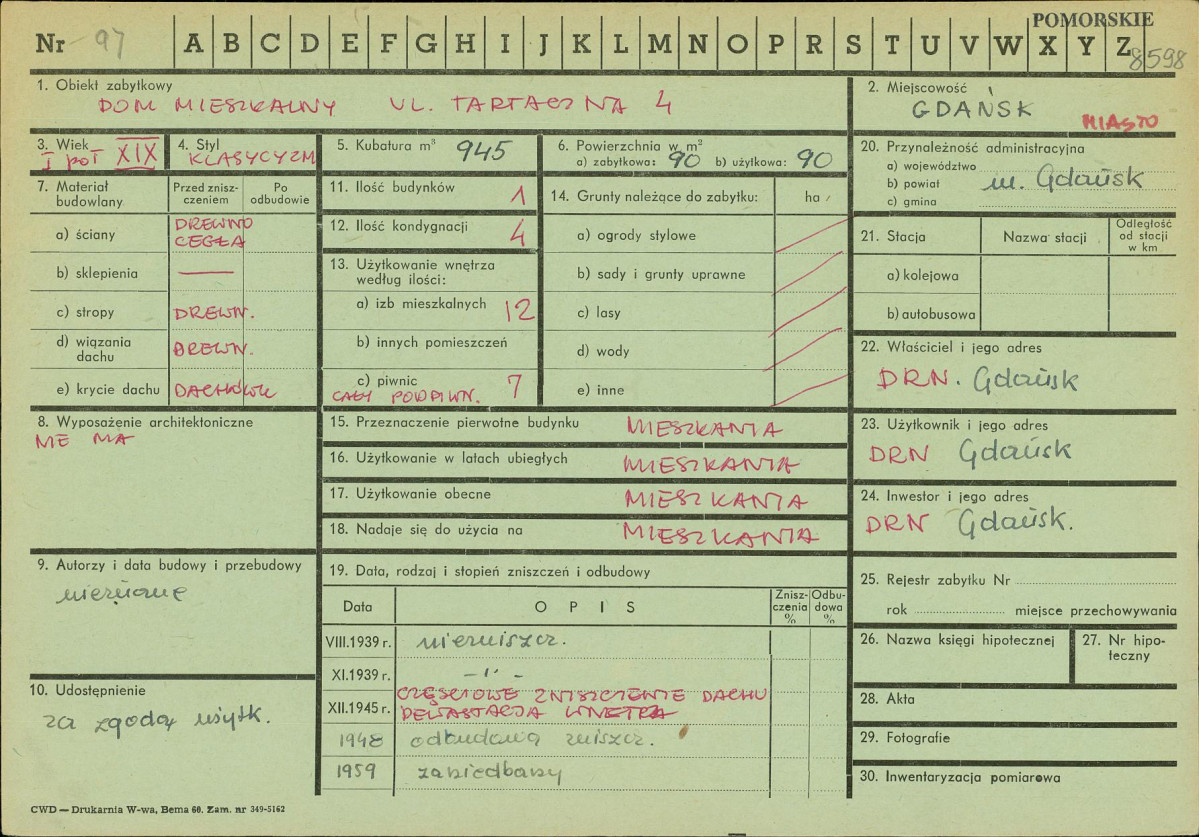 POMORSKIE
Nr 97 A B C D E F G H I J K L M N O P R S T U V W X Y Z
8598
1. Obiekt zabytkowy
DOM MIESZKALNY UL. TARTACZNA 4
2. Miejscowość
GDAŃSK
MIASTO
3. Wiek
I poł XIX
4. Styl
KLASYCYZM
5. Kubatura m³ 945
6. Powierzchnia w m²
a) zabytkowa: 90 b) użytkowa: 90
20. Przynależność administracyjna
a) województwo
b) powiat m. Gdańsk
c) gmina
7. Materiał budowlany
Przed zniszczeniem
Po odbudowie
a) ściany DREWNO
CEGŁA
b) sklepienia —
c) stropy DREWN.
d) wiązania dachu DREWN.
e) krycie dachu DACHÓWK
11. Ilość budynków 1
12. Ilość kondygnacji 4
13. Użytkowanie wnętrza
według ilości:
a) izb mieszkalnych 12
b) innych pomieszczeń
c) piwnic 7
CAŁY PODPIWN.
14. Grunty należące do zabytku: ha
a) ogrody stylowe
b) sady i grunty uprawne
c) lasy
d) wody
e) inne
21. Stacja
Nazwa stacji
Odległość
od stacji
w km
a) kolejowa
b) autobusowa
22. Właściciel i jego adres
DRN. Gdańsk
8. Wyposażenie architektoniczne
NIE MA
15. Przeznaczenie pierwotne budynku MIESZKANIA
16. Użytkowanie w latach ubiegłych MIESZKANIA
17. Użytkowanie obecne MIESZKANIA
18. Nadaje się do użycia na MIESZKANIA
23. Użytkownik i jego adres
DRN Gdańsk
24. Inwestor i jego adres
DRN Gdańsk.
9. Autorzy i data budowy i przebudowy
nieznane
10. Udostępnienie
za zgodą użytk.
19. Data, rodzaj i stopień zniszczeń i odbudowy
Data
OPIS
Zniszczenia %
Odbudowa %
VIII.1939 r. niezniszcz.
XI.1939 r. - " -
XII.1945 r. CZĘŚCIOWE ZNISZCZENIE DACHU
DEWASTACJA WNĘTRZA
1948 odbudowa zniszcz.
1959 zaniedbany
25. Rejestr zabytku Nr
rok miejsce przechowywania
26. Nazwa księgi hipotecznej
27. Nr hipoteczny
28. Akta
29. Fotografie
30. Inwentaryzacja pomiarowa
CWD — Drukarnia W-wa, Bema 60. Zam. nr 349-5162